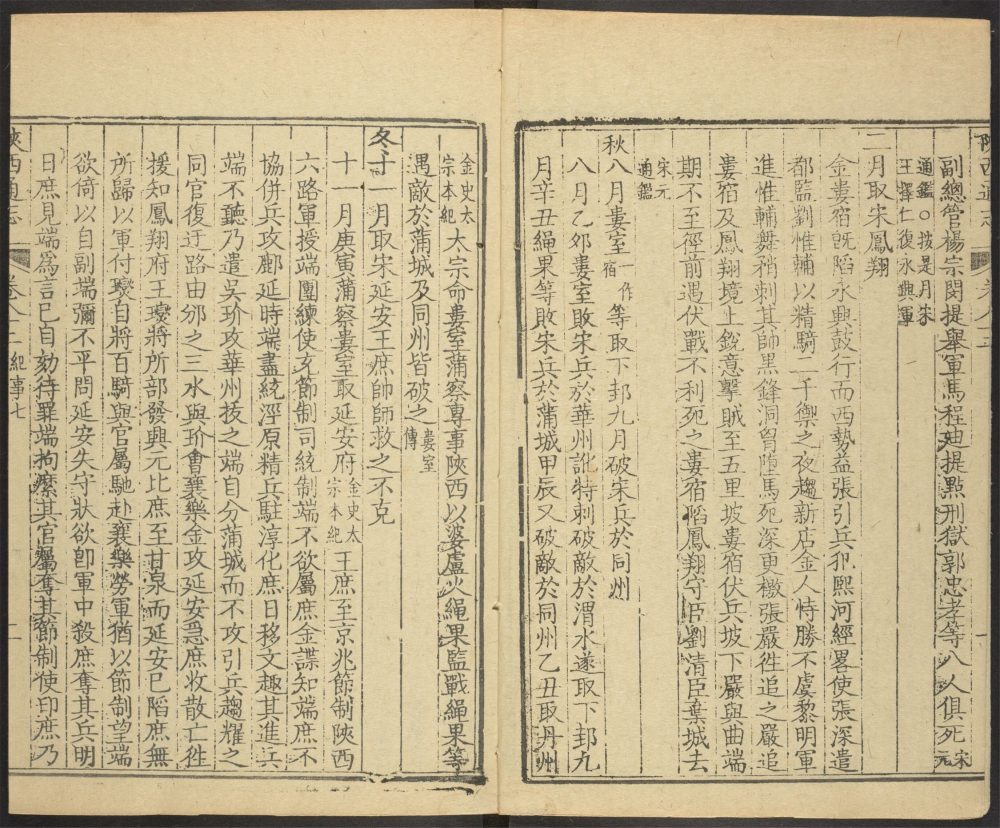 陝西通志
卷八二
一
副總管楊宗閔提舉軍馬程迪提點刑獄郭忠孝等八人俱死宋元
通鑑○按是月宋
王擇仁復永興軍
二月取宋鳳翔
金婁宿既陷永興鼓行而西勢益張引兵犯熙河經畧使張深遣
都監劉惟輔以精騎二千禦之夜趨新店金人恃勝不虞黎明軍
進惟輔舞矟刺其帥黑鋒洞胷墮馬死深更檄張嚴徃追之嚴追
婁宿及鳳翔境上銳意擊賊至五里坡婁宿伏兵坡下嚴與曲端
期不至徑前遇伏戰不利死之婁宿陷鳳翔守臣劉清臣棄城去
宋元
通鑑
秋八月婁室一作宿等取下邽九月破宋兵於同州
八月乙卯婁室敗宋兵於華州訛特刺破敵於渭水遂取下邽九
月辛丑繩果等敗宋兵於蒲城甲辰又破敵於同州乙丑取丹州
金史太
宗本紀太宗命婁室蒲察專事陝西以婆盧火繩果監戰繩果等
遇敵於蒲城及同州皆破之婁室傳
冬十一月取宋延安王庶帥師救之不克
十一月庚寅蒲察婁室取延安府金史太宗本紀王庶至京兆節制陝西
六路軍授端團練使充節制司統制端不欲屬庶金諜知端庶不
協併兵攻鄜延時端盡統涇原精兵駐淳化庶日移文趣其進兵
端不聽乃遣吳玠攻華州拔之端自分蒲城而不攻引兵趨耀之
同官復迂路由邠之三水與玠會襄樂金攻延安急庶收散亡徃
援知鳳翔府王𤫉將所部發興元比庶至甘泉而延安已陷庶無
所歸以軍付𤫉自將百騎與官屬馳赴襄樂勞軍猶以節制望端
欲倚以自副端彌不平問延安失守狀欲卽軍中殺庶奪其兵明
日庶見端爲言已自劾待罪端拘縻其官屬奪其節制使印庶乃
陝西通志
卷八二 紀事七
二